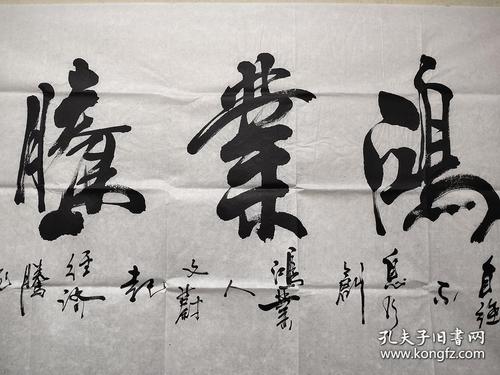 鴻業騰
自強
不
息
創
鴻業
人
文蔚
起
經濟
騰
孔夫子旧书网
www.kongfz.com